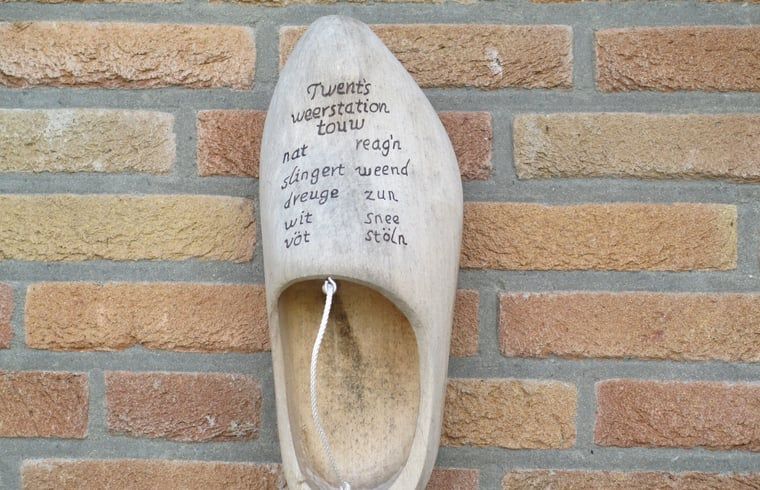 Twent's
weerstation
touw
nat reag'n
slingert weend
dreuge zun
wit snee
vöt stöln